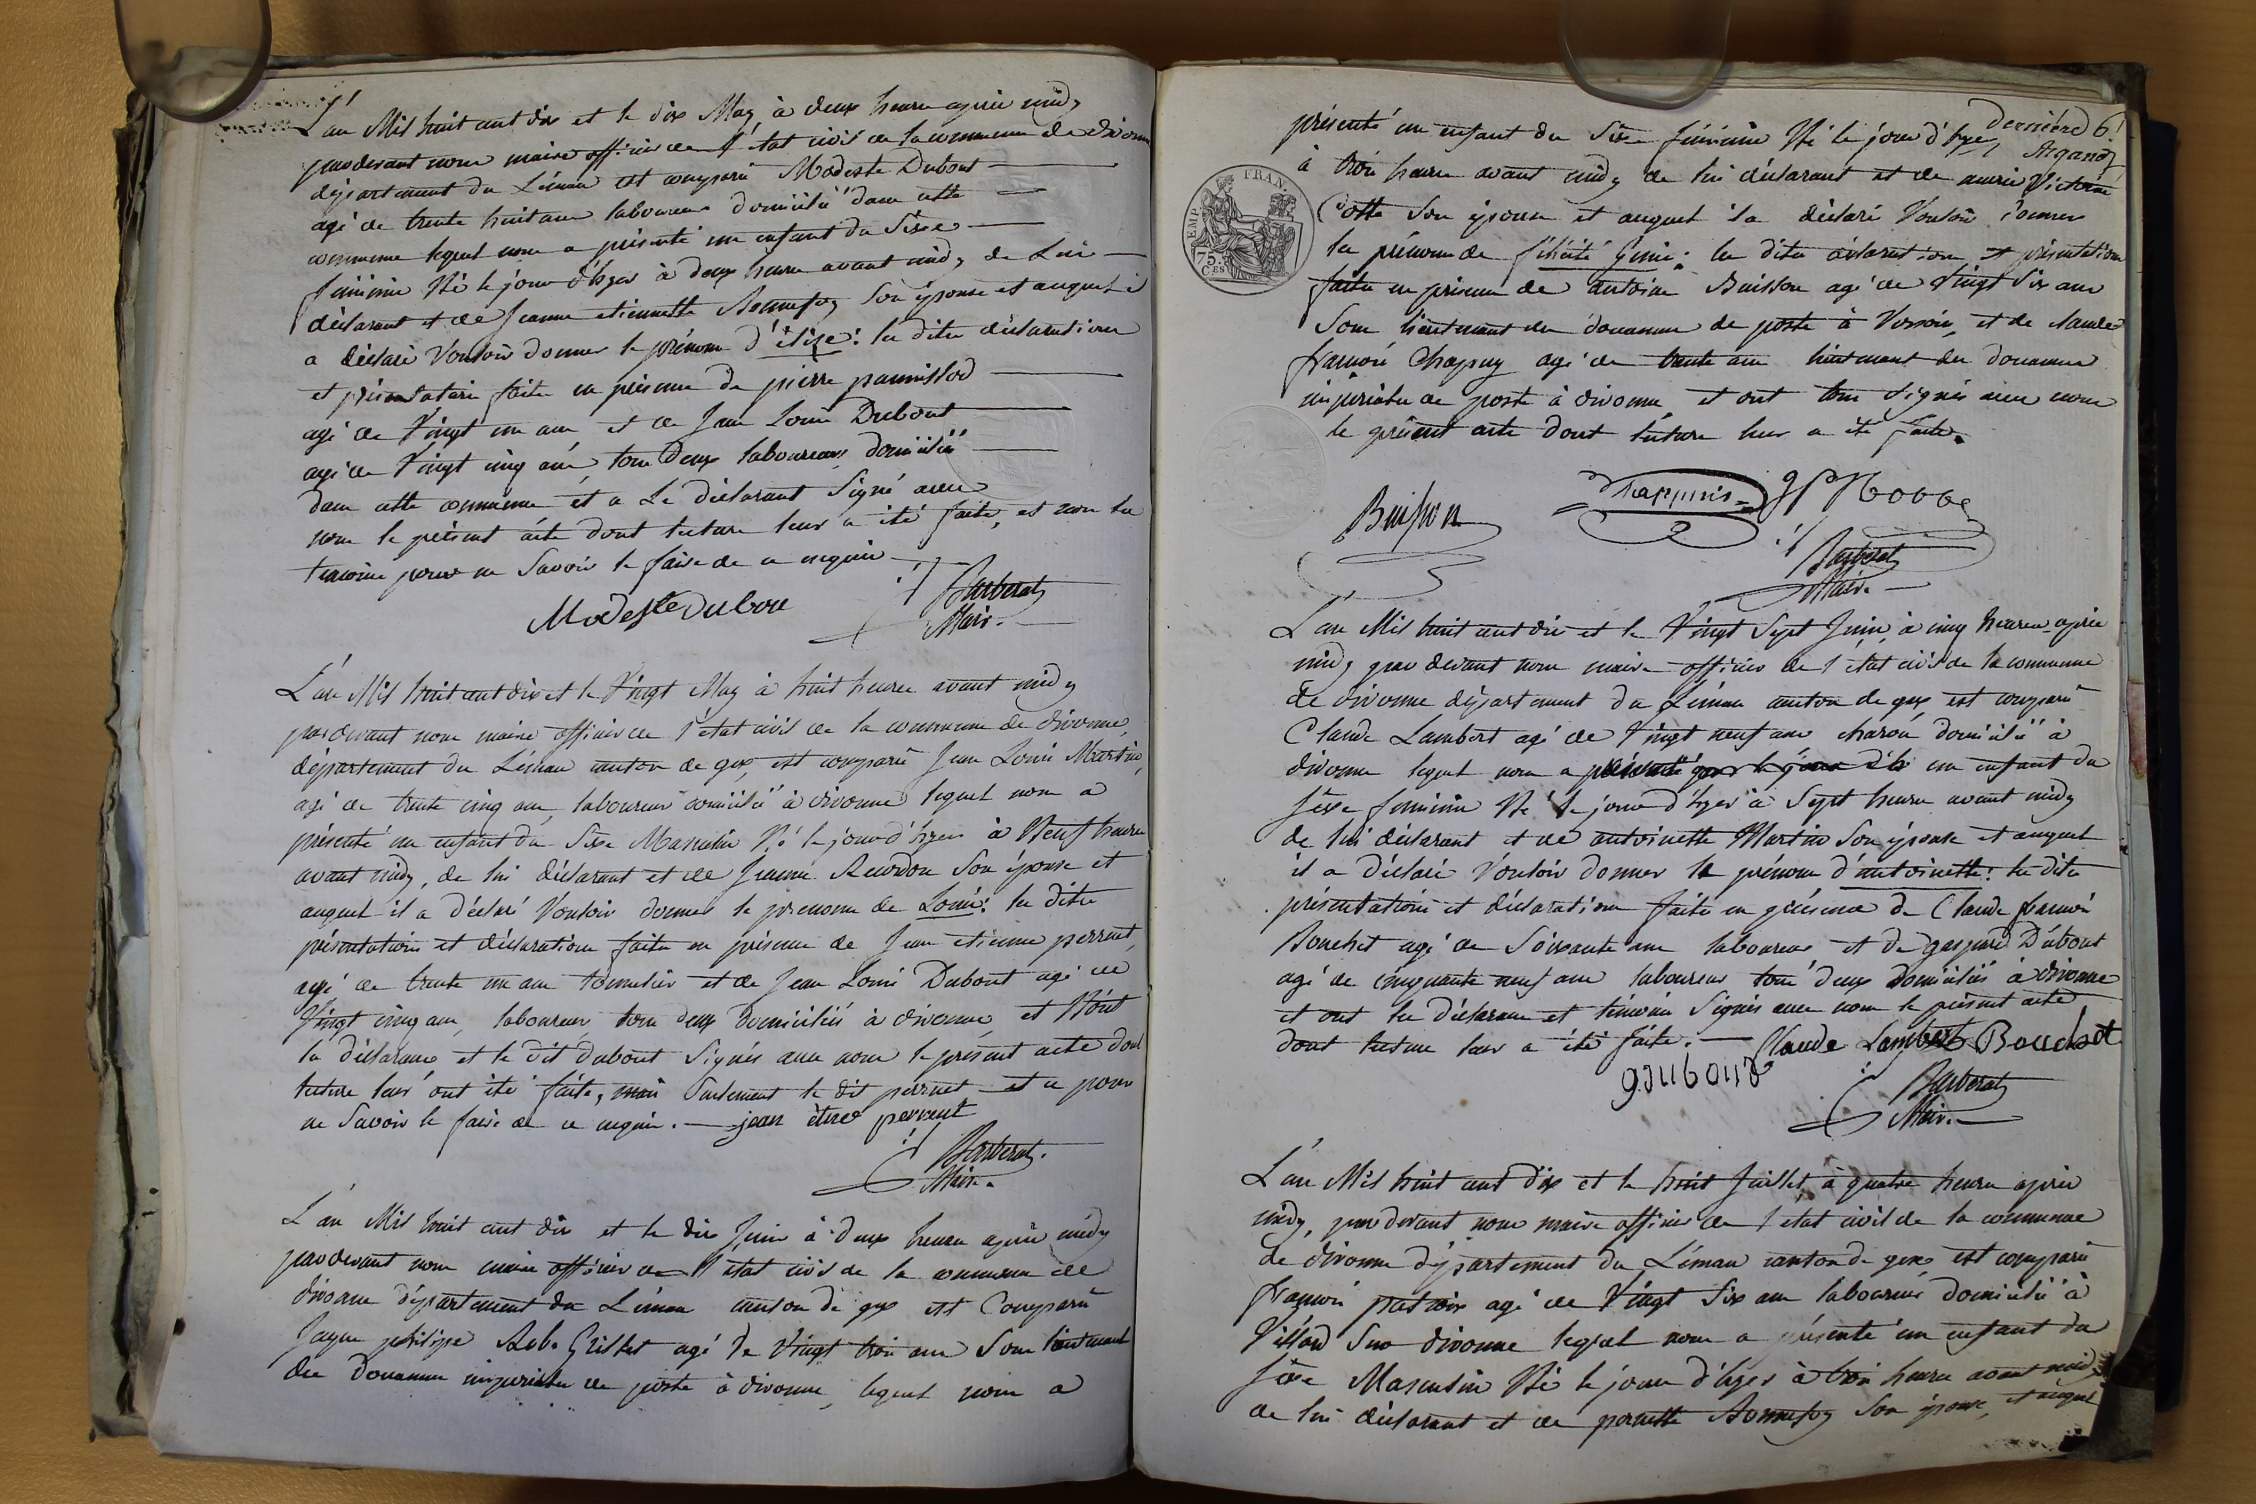 L'an Mil huit cent dix et le dix May, à deux heures après midy
pardevant nous maire officier de l'état civil de la commune de divonne
département du Léman est comparu Modeste Dubout
agé de trente huit ans laboureur domicilié dans cette
commune lequel nous a présenté un enfant du Sexe
féminin Né le jour d'hyer à deux heures avant midy de Lui
déclarant et de Jeanne etiennette Bonnefoy Son épouse et auquel il
a déclaré Vouloir donner le prénom d'élise: les dites déclaration
et présentation faites en présence de pierre pannissod
agé de Vingt un ans et de Jean Louis Dubout
agé de Vingt cinq ans tous deux laboureurs domiciliés
dans cette commune et a Le déclarant Signé avec
nous le présent acte dont lecture leur a été faite, et non les
temoins pour ne Savoir le faire de ce requis
Modeste Dubou
Barberat
Maire.
L'an Mil huit cent dix et le Vingt May à huit heures avant midy
pardevant nous maire officier de l'état civil de la commune de divonne,
département du Léman canton de gex, est comparu Jean Louis Martin,
agé de trente cinq ans, laboureur domicilié à divonne lequel nous a
présenté un enfant du Sexe Masculin Né le jour d'hyer à Neuf heures
avant midy, de lui déclarant et de Jeanne Son épouse et
auquel il a déclaré Vouloir donner le prenom de Louis: les dites
présentation et déclaration faites en présence de Jean etienne perrent,
agé de trente un ans tonnelier et de Jean Louis Dubout agé de
Vingt cinq ans, laboureur tous deux domiciliés à divonne, et N'ont
le déclarant et le dit Dubout Signés avec nous le présent acte dont
lecture leur ont été faite, mais Seulement le dit perrent et ce pour
ne Savoir le faire de ce requis. — jean etiene perrent
Barberat.
Maire.
L'an Mil huit cent dix et le dix Juin à deux heures après midy
pardevant nous maire officier de l'état civil de la commune de
divonne département du Léman canton de gex est Comparu
Jaque philippe Robe Grillet agé de Vingt trois ans Sous lieutenant
des Douannes imperiales de poste à divonne, lequel nous a
dernière 6.
présenté un enfant du Sexe féminin Né le jour d'hyer,
à trois heures avant midy de lui déclarant et de marie Victoire
Cotte Son épouse et auquel il a déclaré Vouloir donner
les prénoms de félicité Génie: les dites déclaration et présentation
faites en présence de antoine Buisson agé de Vingt Six ans
Sous lieutenant des douannes de poste à Versoix, et de Claude
françois Chapuy agé de trente ans lieutenant des douannes
impériales de poste à divonne, et ont tous Signés avec nous
le présent acte dont lecture leur a été faite.
EMP. FRAN.
75. CES
Buisson Chappuis
Barberat
Maire.
L'an Mil huit cent dix et le Vingt Sept Juin, à cinq heures après
midy par devant nous maire officier de l'état civil de la commune
de divonne département du Léman canton de gex est comparu
Claude Lambert agé de Vingt neuf ans charon domicilié à
divonne lequel nous a présenté un enfant du
Sexe feminin Né le jour d'hyer à Sept heures avant midy
de lui déclarant et de antoinette Martin Son épouse et auquel
il a déclaré Vouloir donner le prénom d'antoinette: les dites
présentations et déclaration faites en présence de Claude françois
Bouchet agé de Soixante ans laboureur et de gaspard Dubout
agé de cinquante neuf ans laboureur tous deux domiciliés à divonne
et ont les déclarant et témoins Signés avec nous le présent acte
dont lecture leur a été faite. — Claude Lambert Bouchet
Barberat
Maire.
L'an Mil huit cent dix et le huit Juillet à quatre heures après
midy, par devant nous maire officier de l'état civil de la commune
de divonne département du Léman canton de gex est comparu
françois agé de Vingt Six ans laboureur domicilié à
Villard Sur divonne lequel nous a présenté un enfant du
Sexe Masculin Né le jour d'hyer à trois heures avant midy
de lui déclarant et de pernette Bonnefoy Son épouse, et auquel